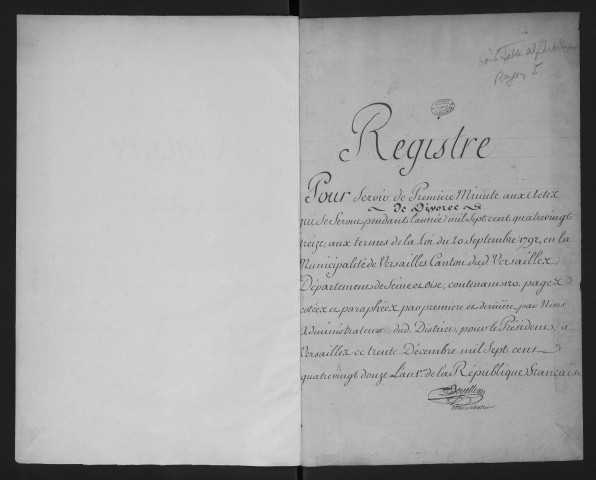 Table
Registre
Pour Servir de Premiere Minute aux Actes
de Divorce
qui se Seront pendant l'année mil Sept cent quatrevingt
treize, aux termes de la Loi du 20. Septembre 1792, en la
Municipalité de Versailles Canton dud. Versailles
Département de Seine et Oise, contenant 120. pages
cotées et paraphées par premiere et derniere, par Nous
Administrateur dud. District, pour le Président, a
Versailles ce trente Décembre mil Sept cent
quatrevingt douze L'an 1er. de la République française
administrateur